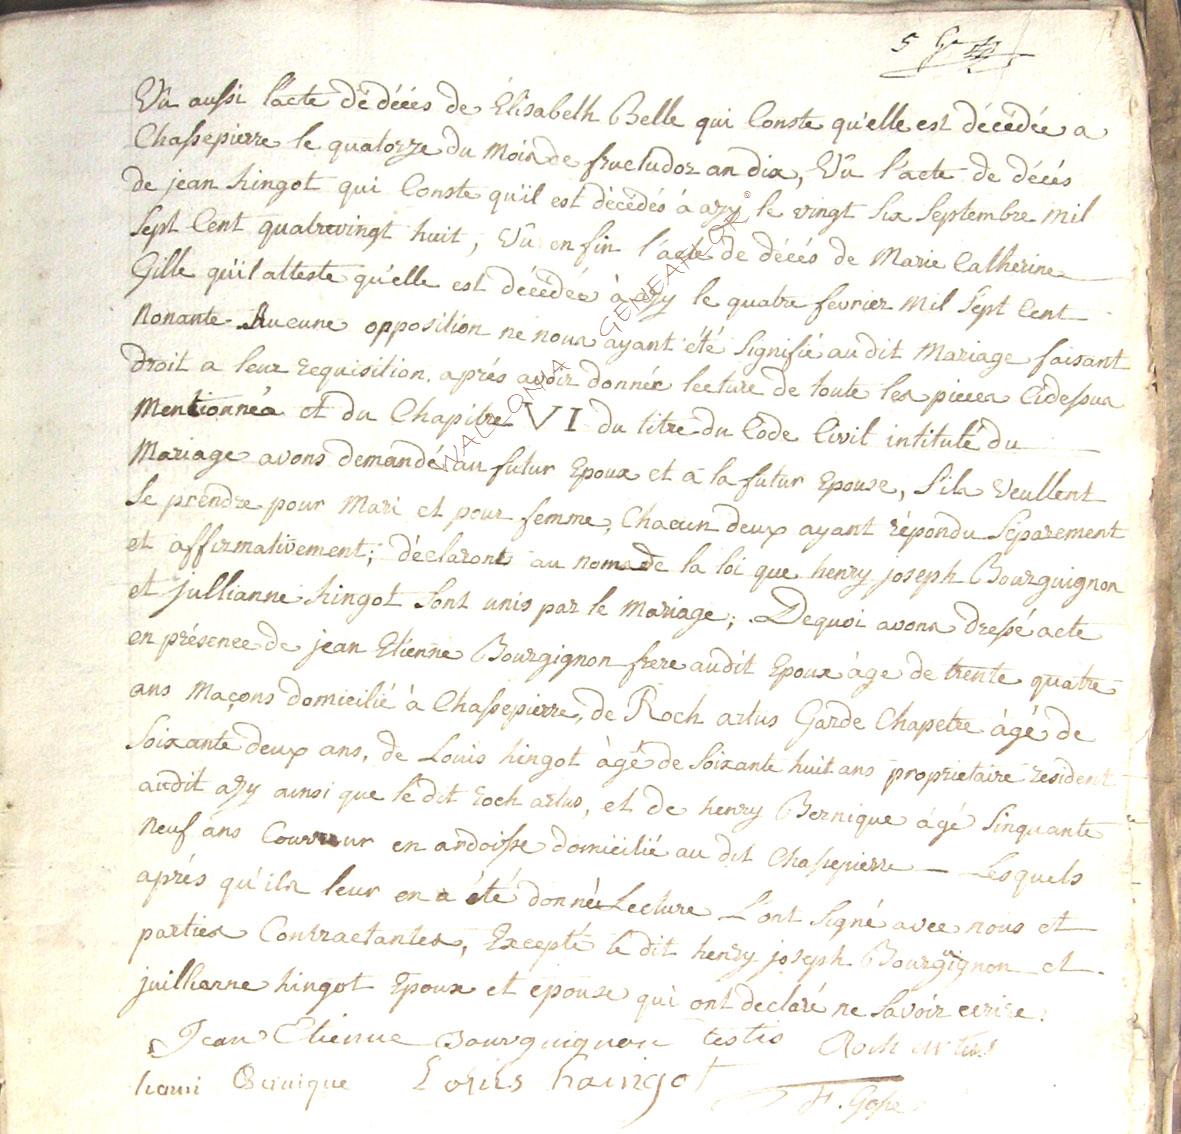 5
Vû aussi l'acte dë déces de Elisabelh Belle qui Conste qu'elle est décédée a
Chassepierre le quatorze du Mois de fructudor an dix, Vû l'acte de décés
de jean hingot qui Conste qu'il est décédés à azy le vingt Six Septembre Mil
Sept Cent quatrevingt huit, Vû en fin l'acte de décés de Marie Catherine
Gille qu'il atteste qu'elle est décédée à azy le quatre fevrier Mil Sept Cent
Nonante. Aucune opposition ne nous ayant été Signifié au dit Mariage faisant
droit a leur requisition, aprés avoir donnée lecture de toute les pieces Cidessus
Mentionnés et du Chapitre VI du titre du Code Civil intitulé du
Mariage avons demandé au futur Epoux et à la futur Epouse, S'ils veullent
Se prendre pour Mari et pour femme, Chacun deux ayant répondu Séparement
et affirmativement; déclarons au nom de la loi que henry joseph Bourguignon
et Jullianne hingot Sont unis par le Mariage; Dequoi avons dressé acte
en présence de jean Etienne Bourgignon frere audit Epoux àge de trente quatre
ans Maçons domicilié à Chassepierre, de Roch artus Garde Chapetre àgé de
Soixante deux ans, de Louis hingot àgé de Soixante huit ans proprietaire résident
audit azy ainsi que le dit roch artus, et de henry Bernique àgé Sinquante
Neuf ans Couvreur en ardoisse domicilié au dit Chassepierre — Lesquels
aprés qu'ils leur en a été donnée Lecture L'ont Signé avec nous et
parties Contractantes, Excepté le dit henry joseph Bourguignon et
juilianne hingot Epoux et epouse qui ont declaré ne Savoir ecrire.
Jean Etienne Bourguignon testis Roch artus
henri Bernique Louis haingot
F. Gosse
WALLONIA GENEALOGY ©